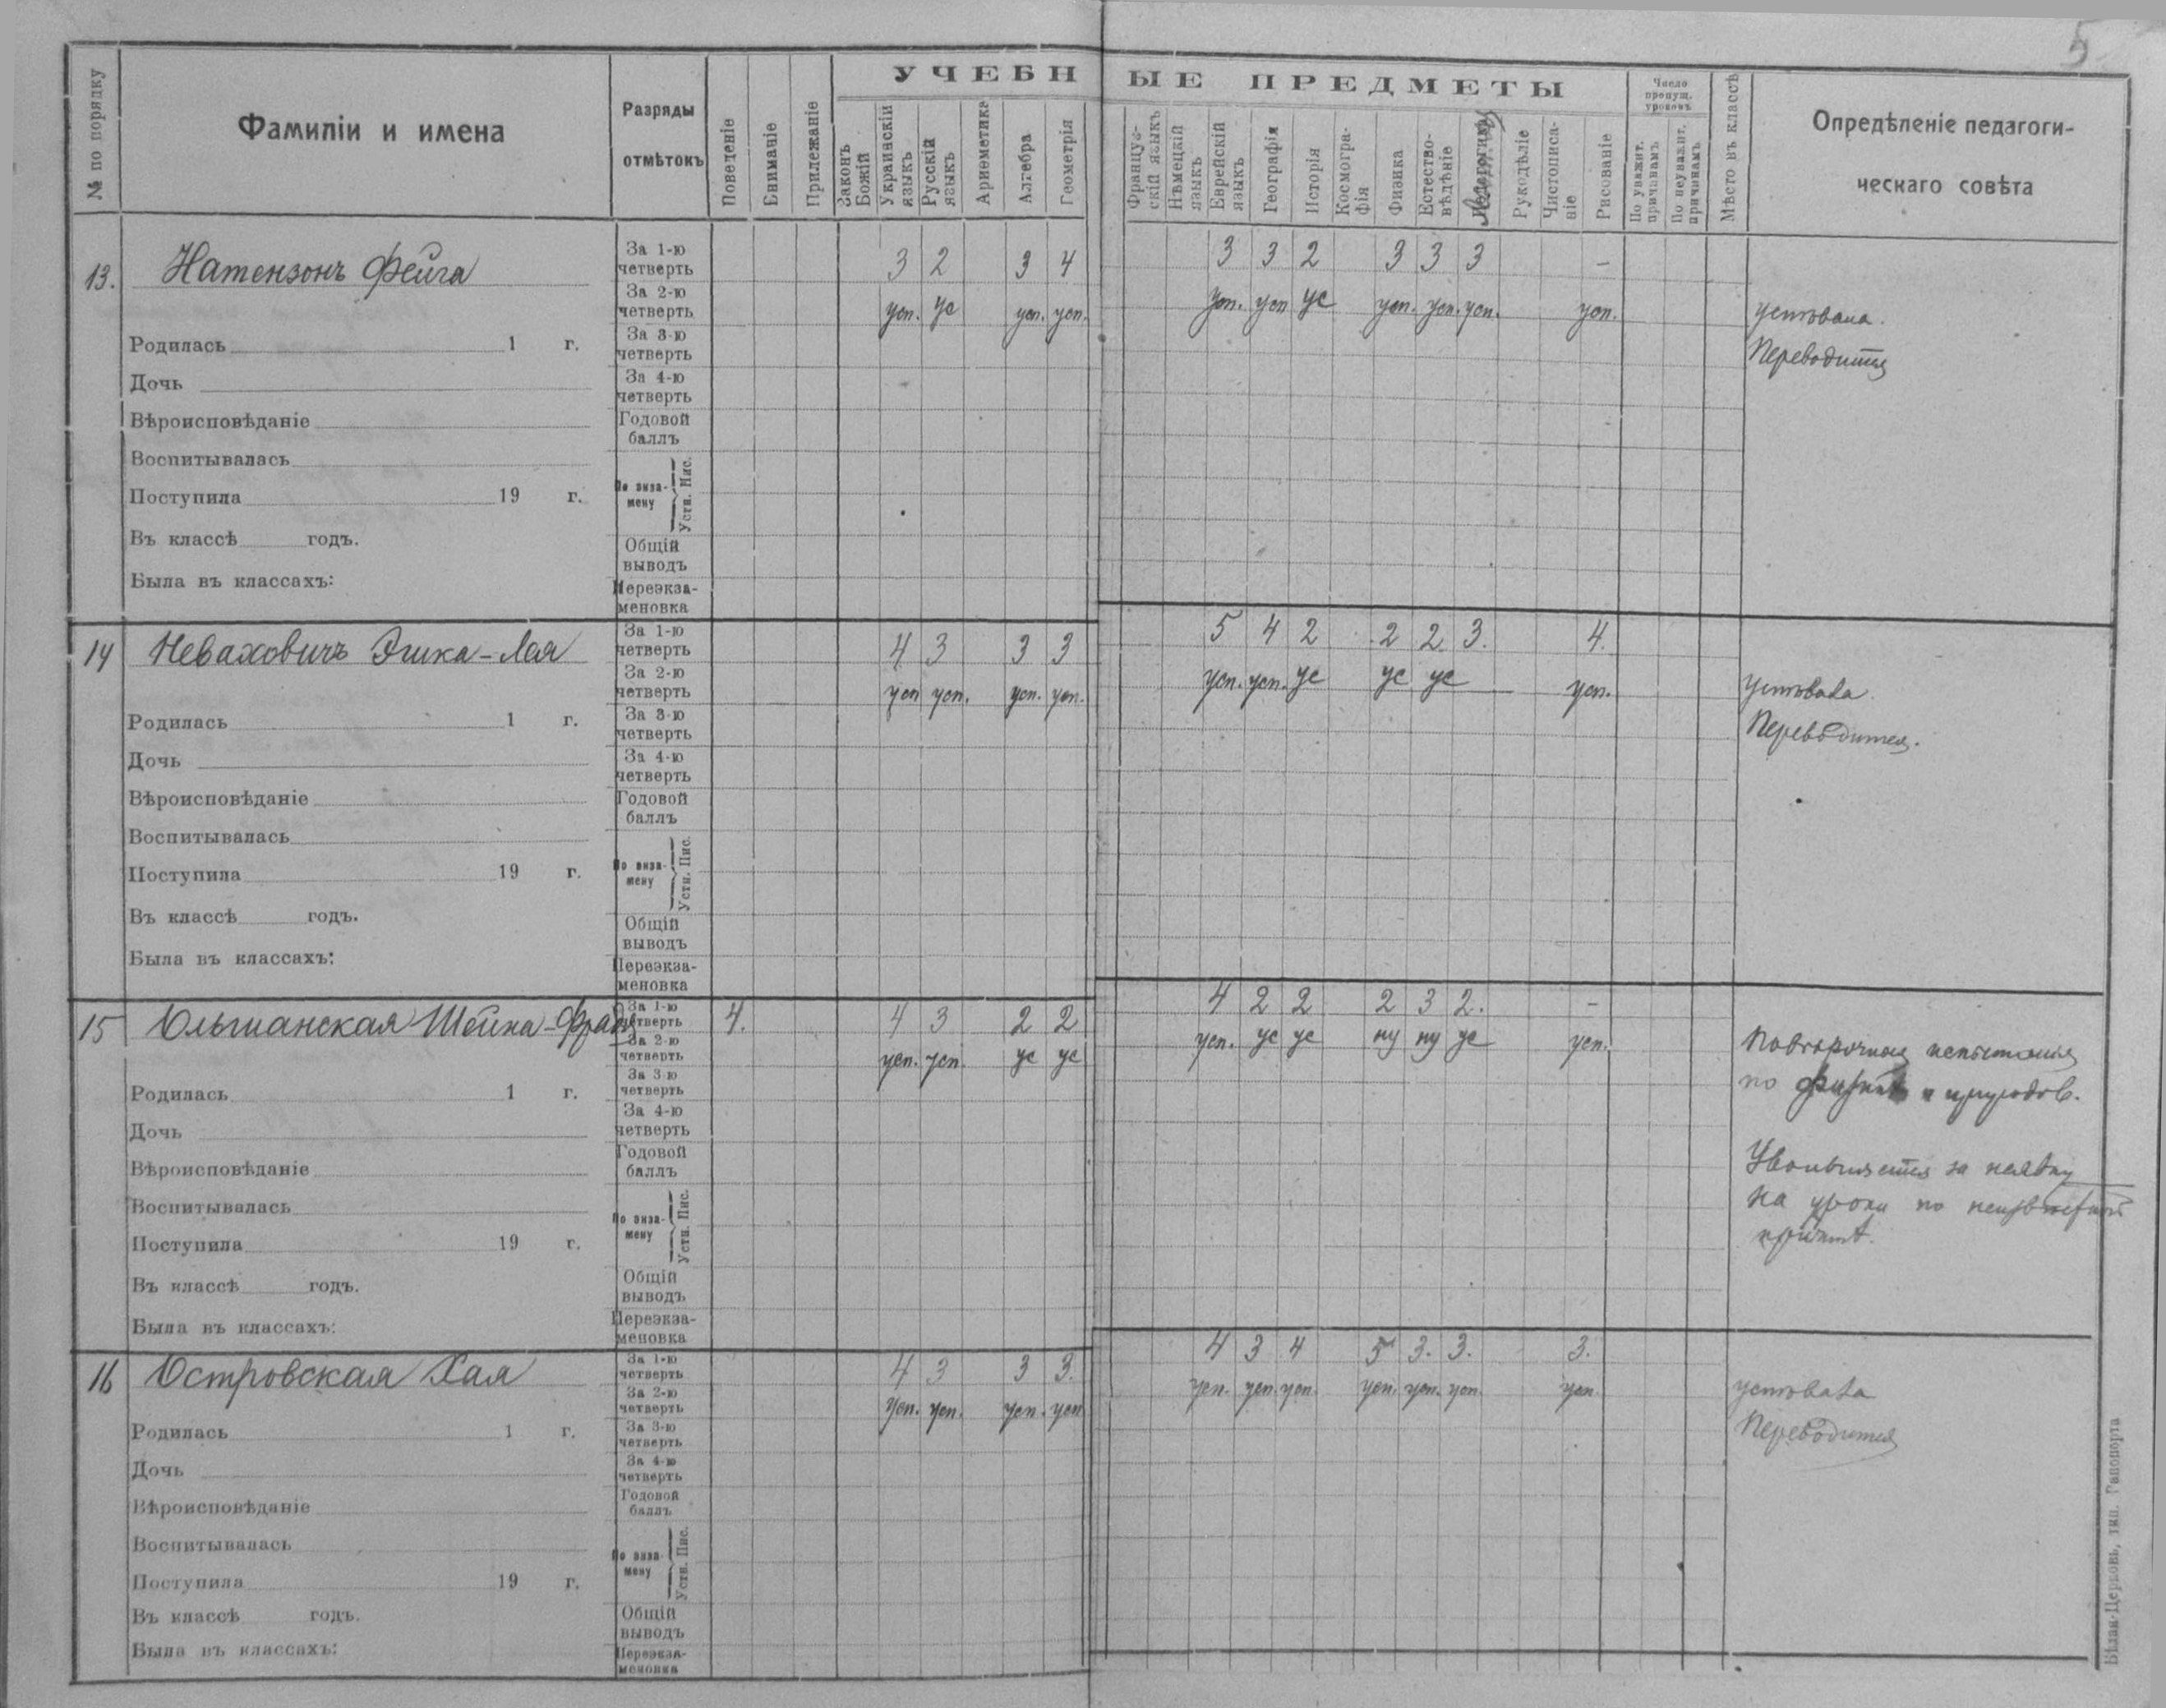 5
УЧЕБНЫЕ ПРЕДМЕТЫ
№ по порядку
Фамиліи и имена
Разряды
отмѣтокъ
Поведеніе
Вниманіе
Прилежаніе
Законъ Божій
Украинскій языкъ
Русскій языкъ
Ариѳметика
Алгебра
Геометрія
Француз-скій языкъ
Нѣмецкій языкъ
Еврейскій языкъ
Географія
Исторія
Космогра-фія
Физика
Естество-вѣдѣніе
Рукодѣліе
Чистописа-ніе
Рисованіе
Число пропущ. уроковъ
По уважит. причинамъ
По неуважит. причинамъ
Мѣсто въ классѣ
Опредѣленіе педагоги-
ческаго совѣта
13. Натензонъ Фейга
За 1-ю четверть 3 2 3 4 3 3 2 3 3 3 –
За 2-ю четверть усп. ус усп. усп. усп. усп ус усп. усп. усп. усп.
успѣвала.
Переводится
Родилась 1 г.
За 3-ю четверть
Дочь
За 4-ю четверть
Вѣроисповѣданіе
Годовой баллъ
Воспитывалась
Поступила 19 г.
По экза-мену Устн. Пис.
Въ классѣ годъ.
Общій выводъ
Была въ классахъ:
Переэкза-меновка
14 Неваховичъ Эшка-Лея
За 1-ю четверть 4 3 3 3 5 4 2 2 2 3. 4.
За 2-ю четверть усп усп. усп. усп. усп. усп. ус ус ус — усп.
успѣвала.
Переводится.
Родилась 1 г.
За 3-ю четверть
Дочь
За 4-ю четверть
Вѣроисповѣданіе
Годовой баллъ
Воспитывалась
Поступила 19 г.
По экза-мену Устн. Пис.
Въ классѣ годъ.
Общій выводъ
Была въ классахъ:
Переэкза-меновка
15 Ольшанская Шейна-
За 1-ю четверть 4. 4 3 2 2 4 2 2 2 3 2. –
За 2-ю четверть усп. усп. ус ус усп. ус ус ну ну ус усп.
по физикѣ и природов.
Увольняется за неявку
на уроки по неизвѣстной
причинѣ.
Родилась 1 г.
За 3-ю четверть
Дочь
За 4-ю четверть
Вѣроисповѣданіе
Годовой баллъ
Воспитывалась
Поступила 19 г.
По экза-мену Устн. Пис.
Въ классѣ годъ.
Общій выводъ
Была въ классахъ:
Переэкза-меновка
16 Островская Хая
За 1-ю четверть 4 3 3 3. 4 3 4 5 3. 3. 3.
За 2-ю четверть усп. усп. усп. усп усп. усп. усп. усп. усп. усп. усп.
успѣвала
Переводится
Родилась 1 г.
За 3-ю четверть
Дочь
За 4-ю четверть
Вѣроисповѣданіе
Годовой баллъ
Воспитывалась
Поступила 19 г.
По экза-мену Устн. Пис.
Въ классѣ годъ.
Общій выводъ
Была въ классахъ:
Переэкза-меновка
Бѣлая-Церковь, тип. Гапопорта